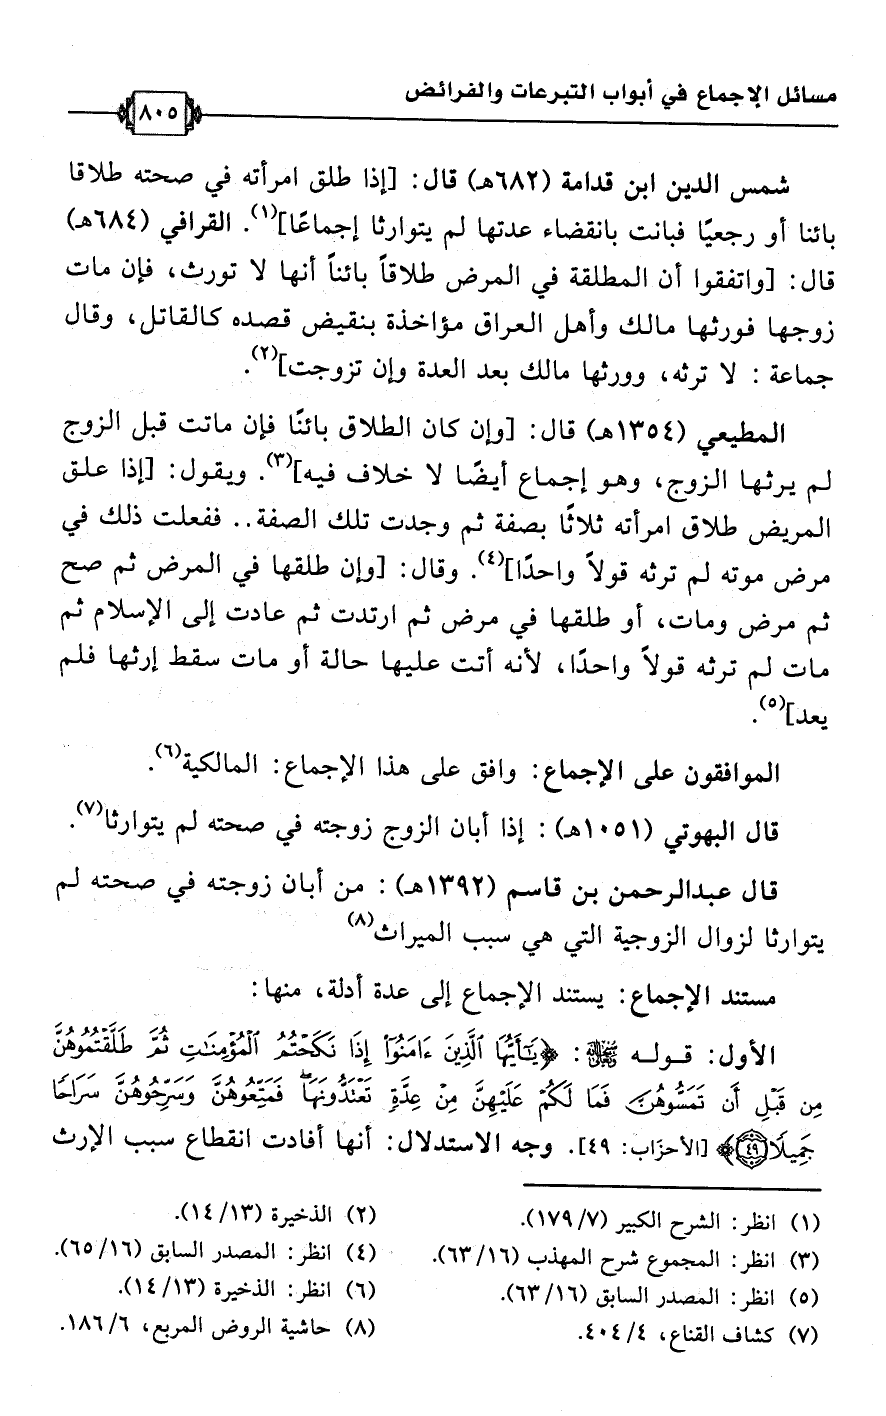 مسائل الإجماع في أبواب التبرعات والفرائض
٨٠٥
شمس الدين ابن قدامة (٦٨٢هـ) قال: [إذا طلق امرأته في صحته طلاقا
بائنا أو رجعيًا فبانت بانقضاء عدتها لم يتوارثا إجماعًا](١). القرافي (٦٨٤هـ)
قال: [واتفقوا أن المطلقة في المرض طلاقاً بائناً أنها لا تورث، فإن مات
زوجها فورثها مالك وأهل العراق مؤاخذة بنقيض قصده كالقاتل، وقال
جماعة : لا ترثه، وورثها مالك بعد العدة وإن تزوجت](٢).
المطيعي (١٣٥٤هـ) قال: [وإن كان الطلاق بائنًا فإن ماتت قبل الزوج
لم يرثها الزوج، وهو إجماع أيضًا لا خلاف فيه](٣). ويقول: [إذا علق
المريض طلاق امرأته ثلاثًا بصفة ثم وجدت تلك الصفة.. ففعلت ذلك في
مرض موته لم ترثه قولاً واحدًا](٤). وقال: [وإن طلقها في المرض ثم صح
ثم مرض ومات، أو طلقها في مرض ثم ارتدت ثم عادت إلى الإسلام ثم
مات لم ترثه قولاً واحدًا، لأنه أتت عليها حالة أو مات سقط إرثها فلم
يعد](٥).
الموافقون على الإجماع: وافق على هذا الإجماع: المالكية(٦).
قال البهوتي (١٠٥١هـ) : إذا أبان الزوج زوجته في صحته لم يتوارثا(٧).
قال عبدالرحمن بن قاسم (١٣٩٢هـ) : من أبان زوجته في صحته لم
يتوارثا لزوال الزوجية التي هي سبب الميراث(٨)
مستند الإجماع: يستند الإجماع إلى عدة أدلة، منها:
الأول: قوله ﷻ: ﴿يَٰٓأَيُّهَا ٱلَّذِينَ ءَامَنُوٓاْ إِذَا نَكَحۡتُمُ ٱلۡمُؤۡمِنَٰتِ ثُمَّ طَلَّقۡتُمُوهُنَّ
مِن قَبۡلِ أَن تَمَسُّوهُنَّ فَمَا لَكُمۡ عَلَيۡهِنَّ مِنۡ عِدَّةٖ تَعۡتَدُّونَهَاۖ فَمَتِّعُوهُنَّ وَسَرِّحُوهُنَّ سَرَاحٗا
جَمِيلٗا ٤٩﴾ [الأحزَاب: ٤٩]. وجه الاستدلال: أنها أفادت انقطاع سبب الإرث
(١) انظر: الشرح الكبير (١٧٩/٧).
(٢) الذخيرة (١٤/١٣).
(٣) انظر: المجموع شرح المهذب (٦٣/١٦).
(٤) انظر: المصدر السابق (٦٥/١٦).
(٥) انظر: المصدر السابق (٦٣/١٦).
(٦) انظر: الذخيرة (١٤/١٣).
(٧) كشاف القناع، ٤٠٤/٤.
(٨) حاشية الروض المربع، ١٨٦/٦.